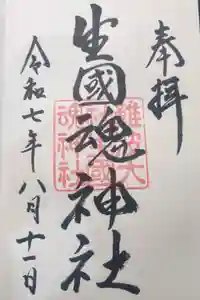 奉拝
生國魂神社
令和七年八月十一日
難波大
國
魂神社